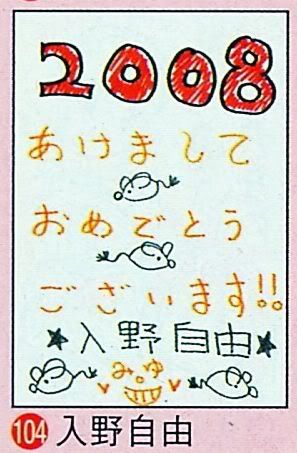 2008
あけまして
おめでとう
ございます!!
★入野自由★
みゆ
104 入野自由